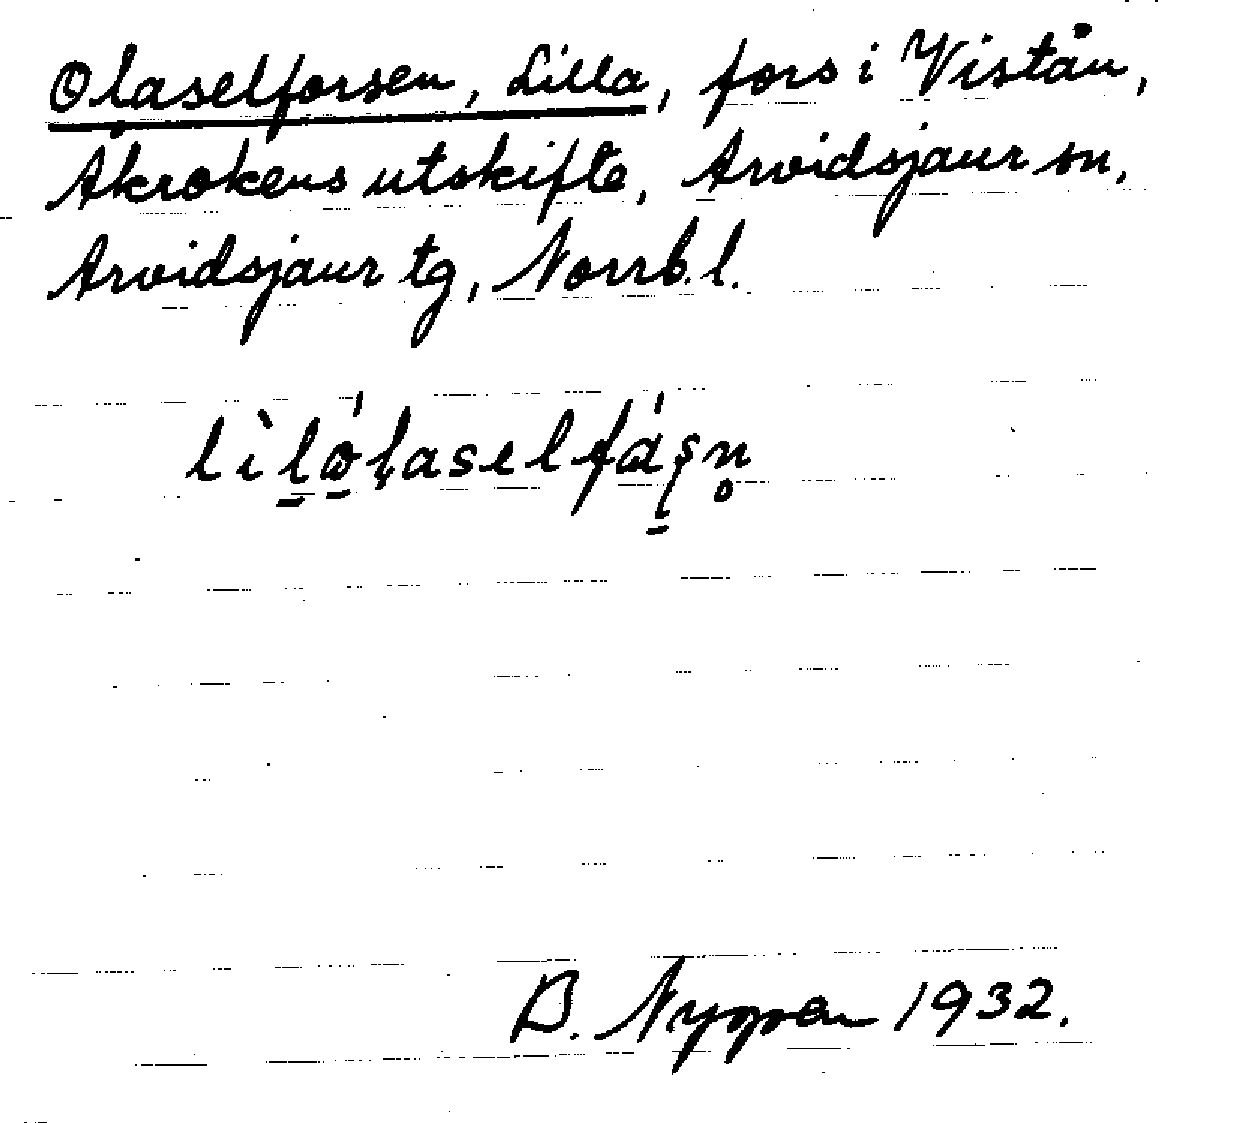 Olaselforsen, Lilla, fors i Vistån,
Åkrokens utskifte, Arvidsjaur sn,
Arvidsjaur tg, Norrb. l.
B. Nygren 1932.